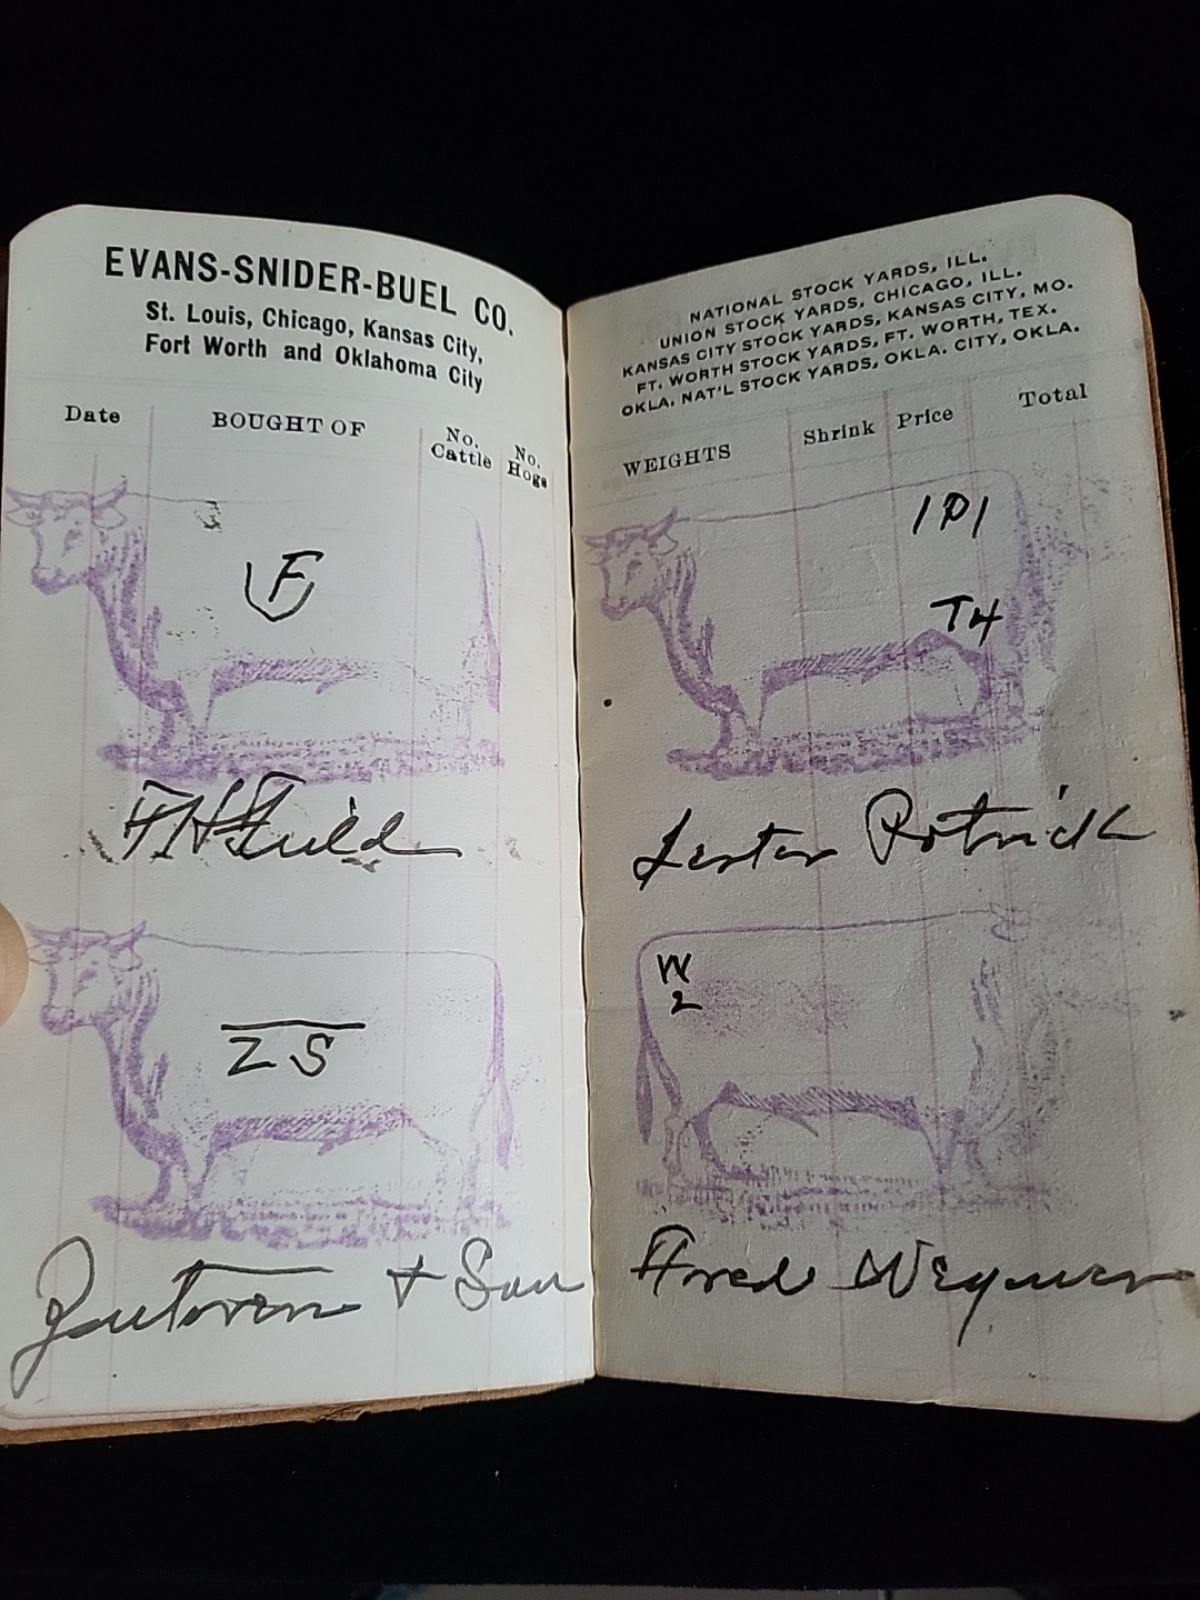 EVANS-SNIDER-BUEL CO.
St. Louis, Chicago, Kansas City,
Fort Worth and Oklahoma City
Date BOUGHT OF No. Cattle No. Hogs
F
ZS
& Son
NATIONAL STOCK YARDS, ILL.
UNION STOCK YARDS, CHICAGO, ILL.
KANSAS CITY STOCK YARDS, KANSAS CITY, MO.
FT. WORTH STOCK YARDS, FT. WORTH, TEX.
OKLA. NAT'L STOCK YARDS, OKLA. CITY, OKLA.
WEIGHTS Shrink Price Total
IPI
TH
Lester
W
2
Fred